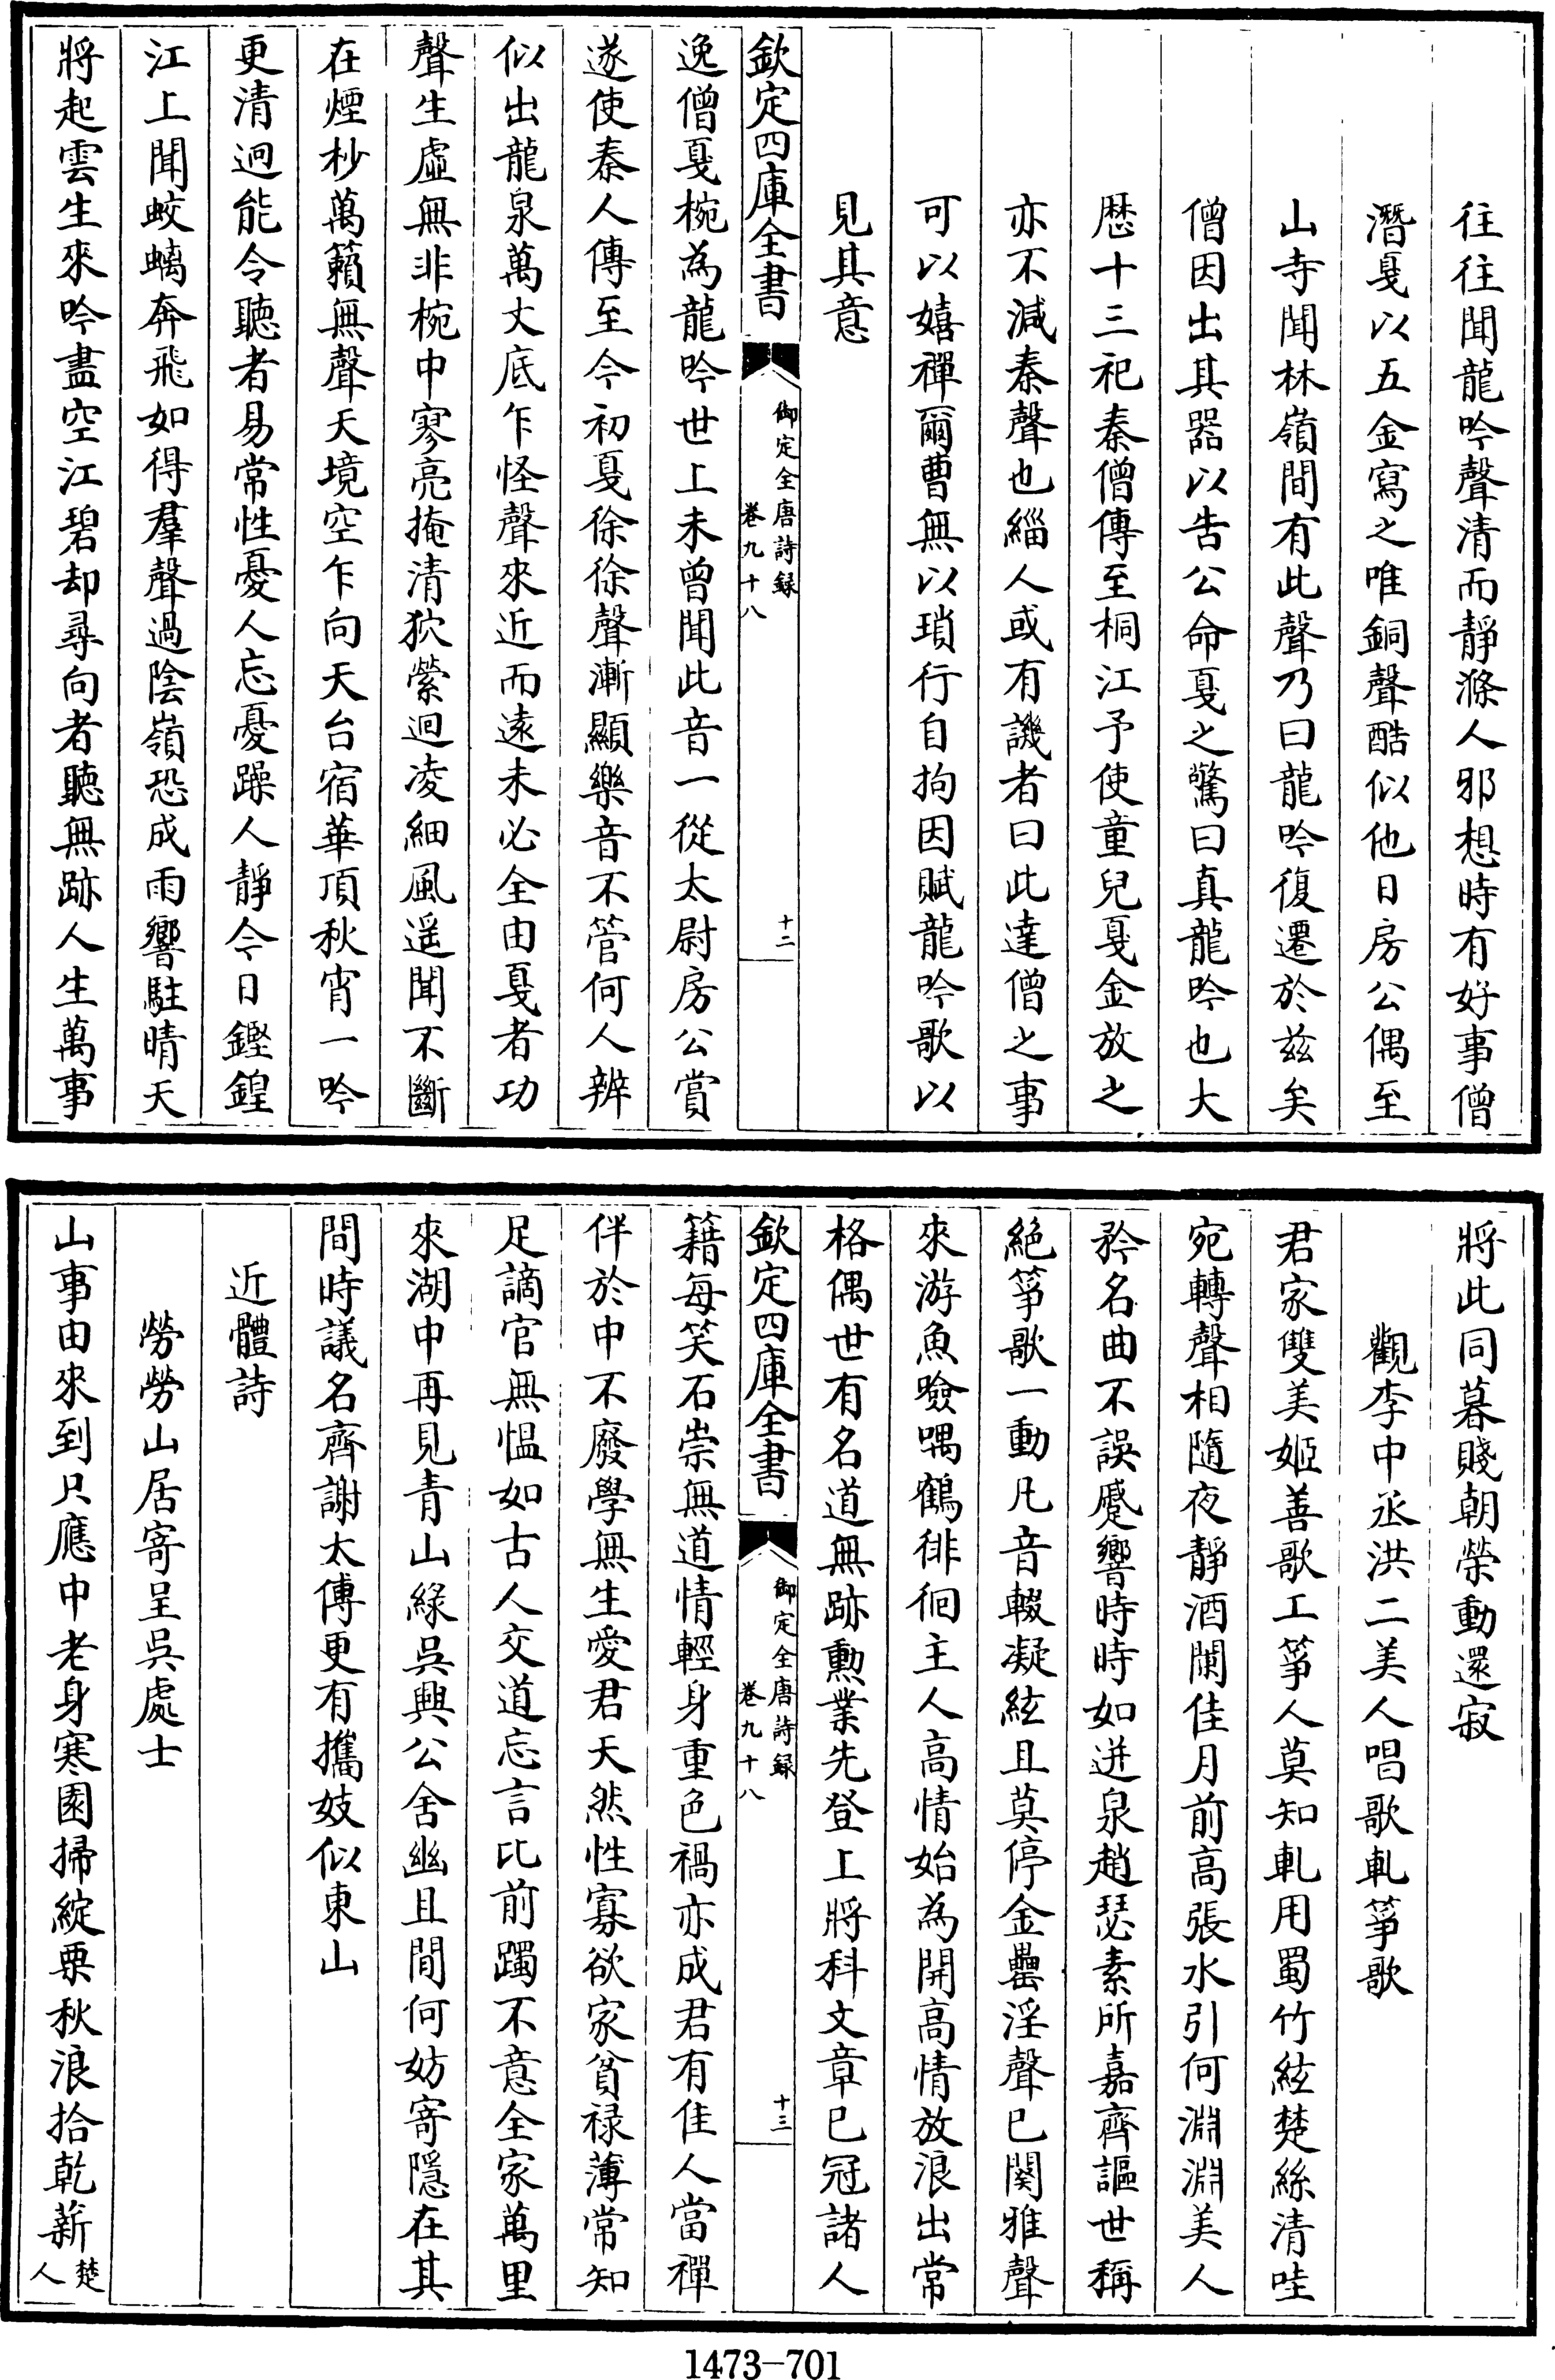 往往聞龍吟聲清而靜滌人邪想時有好事僧
潛戛以五金寫之唯銅聲酷似他日房公偶至
山寺聞林嶺間有此聲乃曰龍吟復遷於茲矣
僧因出其器以告公命戛之驚曰真龍吟也大
歴十三祀秦僧傳至桐江予使童兒戛金放之
亦不減秦聲也緇人或有譏者曰此達僧之事
可以嬉禪爾曹無以瑣行自拘因賦龍吟歌以
見其意
欽定四庫全書
御定全唐詩録
卷九十八
十二
逸僧戛椀為龍吟世上未曾聞此音一從太尉房公賞
遂使秦人傳至今初戛徐徐聲漸顯樂音不管何人辨
似出龍泉萬丈底乍怪聲來近而遠未必全由戛者功
聲生虛無非椀中寥亮掩清狖縈迴凌細風遥聞不斷
在煙杪萬籟無聲天境空乍向天台宿華頂秋宵一吟
更清迥能令聽者易常性憂人忘憂躁人靜今日鏗鍠
江上聞蛟螭奔飛如得羣聲過陰嶺恐成雨響駐晴天
將起雲生來吟盡空江碧却尋向者聽無跡人生萬事
將此同暮賤朝榮動還寂
觀李中丞洪二美人唱歌軋箏歌
君家雙美姬善歌工箏人莫知軋用蜀竹絃楚絲清哇
宛轉聲相隨夜靜酒闌佳月前高張水引何淵淵美人
矜名曲不誤蹙響時時如迸泉趙瑟素所嘉齊謳世稱
絶箏歌一動凡音輟凝絃且莫停金罍淫聲已闋雅聲
來游魚噞喁鶴徘徊主人高情始為開高情放浪出常
格偶世有名道無跡勲業先登上將科文章已冠諸人
欽定四庫全書
御定全唐詩録
卷九十八
十三
籍每笑石崇無道情輕身重色禍亦成君有佳人當禪
伴於中不廢學無生愛君天然性寡欲家貧禄薄常知
足謫官無愠如古人交道忘言比前躅不意全家萬里
來湖中再見青山緑吳興公舍幽且閒何妨寄隱在其
間時議名齊謝太傅更有攜妓似東山
近體詩
勞勞山居寄呈吳處士
山事由來到只應中老身寒園掃綻栗秋浪拾乾薪楚
人
1473-701